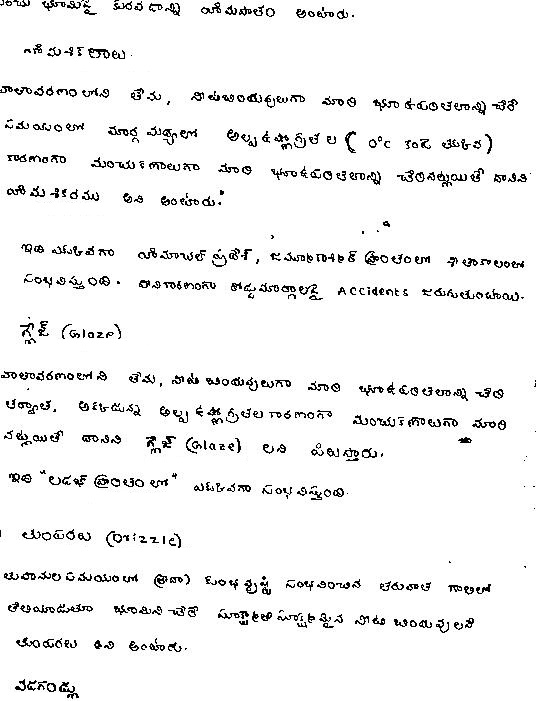 మంచు భూమిపై కురవడాన్ని హిమపాతం అంటారు.
హిమశీకరాలు
వాతావరణంలోని తేమ, నీటిబిందువులుగా మారి భూఉపరితలాన్ని చేరే
సమయంలో మార్గ మధ్యలో అల్ప ఉష్ణోగ్రతల (0°c కంటే తక్కువ)
కారణంగా మంచుకణాలుగా మారి భూఉపరితలాన్ని చేరినట్లయితే దానిని
హిమశీకరము అని అంటారు.
ఇది ఎక్కువగా హిమాచల్ ప్రదేశ్, జమ్మూకాశ్మీర్ ప్రాంతంలో శీతాకాలంలో
సంభవిస్తుంది. దీనికారణంగా రోడ్డుమార్గాలపై Accidents జరుగుతుంటాయి.
గ్లేజ్ (Glaze)
వాతావరణంలోని తేమ, నీటి బిందువులుగా మారి భూఉపరితలాన్ని చేరి
తర్వాత, అక్కడున్న అల్ప ఉష్ణోగ్రతల కారణంగా మంచుకణాలుగా మారి
నట్లయితే దానిని గ్లేజ్ (Glaze) లని పిలుస్తారు.
ఇది "లడఖ్ ప్రాంతంలో" ఎక్కువగా సంభవిస్తుంది.
తుంపరలు (Drizzle)
తుఫానుల సమయంలో (లేదా) కుంభవృష్టి సంభవించిన తరువాత గాలిలో
తేలియాడుతూ భూమిని చేరే సూక్ష్మాతిసూక్ష్మమైన నీటి బిందువులని
తుంపరలు అని అంటారు.
వడగండ్లు